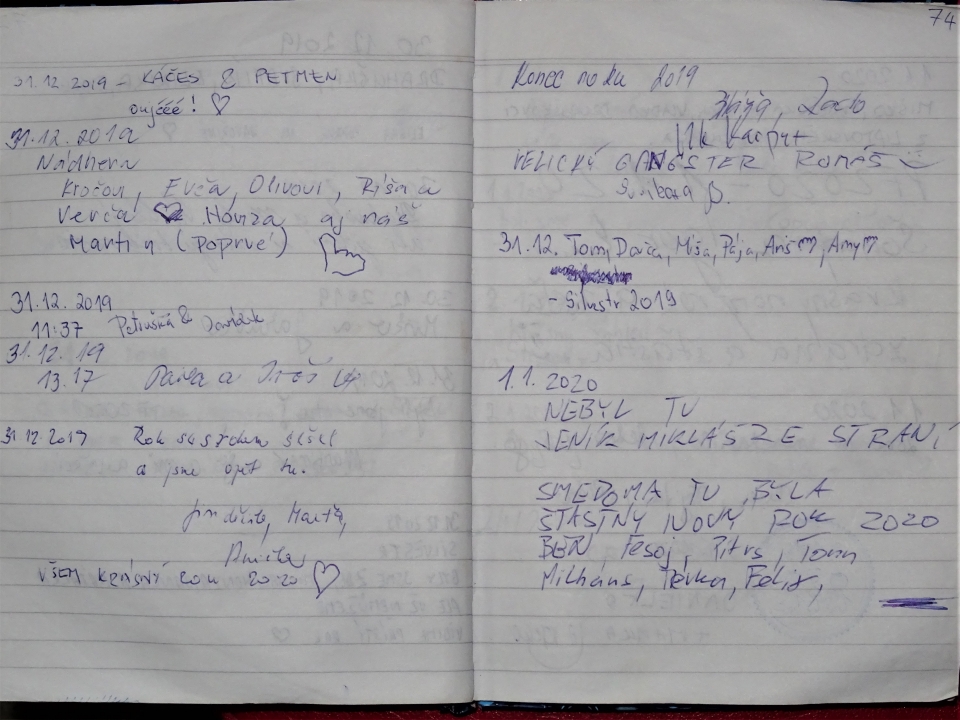 31.12 2019 - KÁČES & PETMEN
oujééé!
31.12.2019
Nádhera
Kročovi, Evča, Olivovi, Ríša a
Verča Honza aj náš
Martin (poprvé)
31.12.2019
11:37 Petruška & Dominik
31.12.19
13.17 Pavla a
31.12.2019 Rok se s rokem sešel
a jsme opět tu.
Jindřiška, Marta,
Anička
VŠEM KRÁSNÝ ROK 2020
74
Konec roku 2019
VELICKÝ GANGSTER ROMÁŠ
31.12. Tom, Davča, Míša, Pája, Ariš, Amy
- Silvestr 2019
1.1. 2020
NEBYL TU
JENÍK MIKLÁŠ ZE STRANÍ
SMEDOMA TU BYLA
ŠŤASTNÝ NOVÝ ROK 2020
Fesoj, Pitrs, Tom
Milhans, Pevka, Felix,